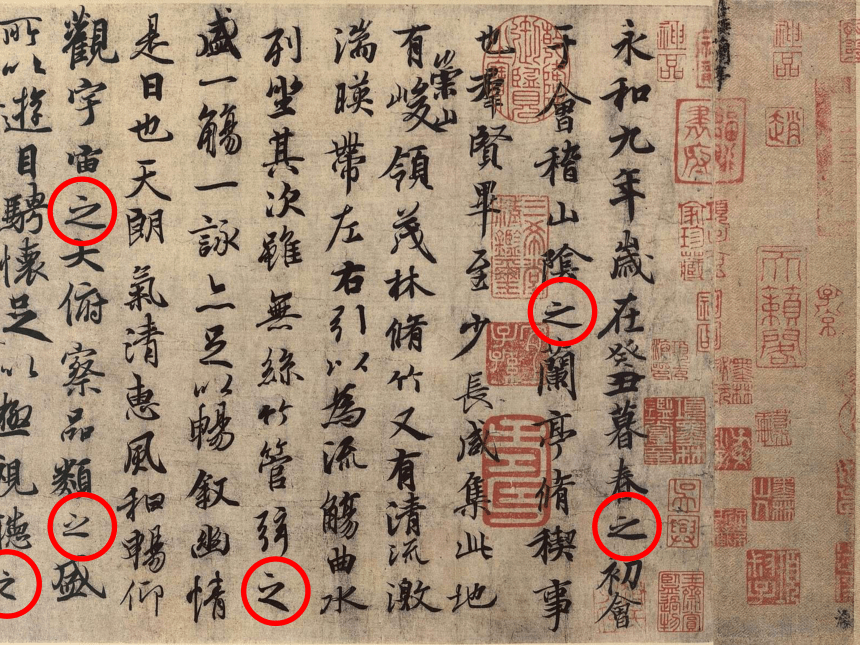 神品
趙
天籟閣
子京
神品
永和九年歲在癸丑暮春之初會
于會稽山陰之蘭亭脩稧事
也羣賢畢至少長咸集此地
有崇山峻領茂林脩竹又有清流激
湍暎帶左右引以為流觴曲水
列坐其次雖無絲竹管弦之
盛一觴一詠亦足以暢敘幽情
是日也天朗氣清惠風和暢仰
觀宇宙之大俯察品類之盛
所以遊目騁懷足以極視聽之